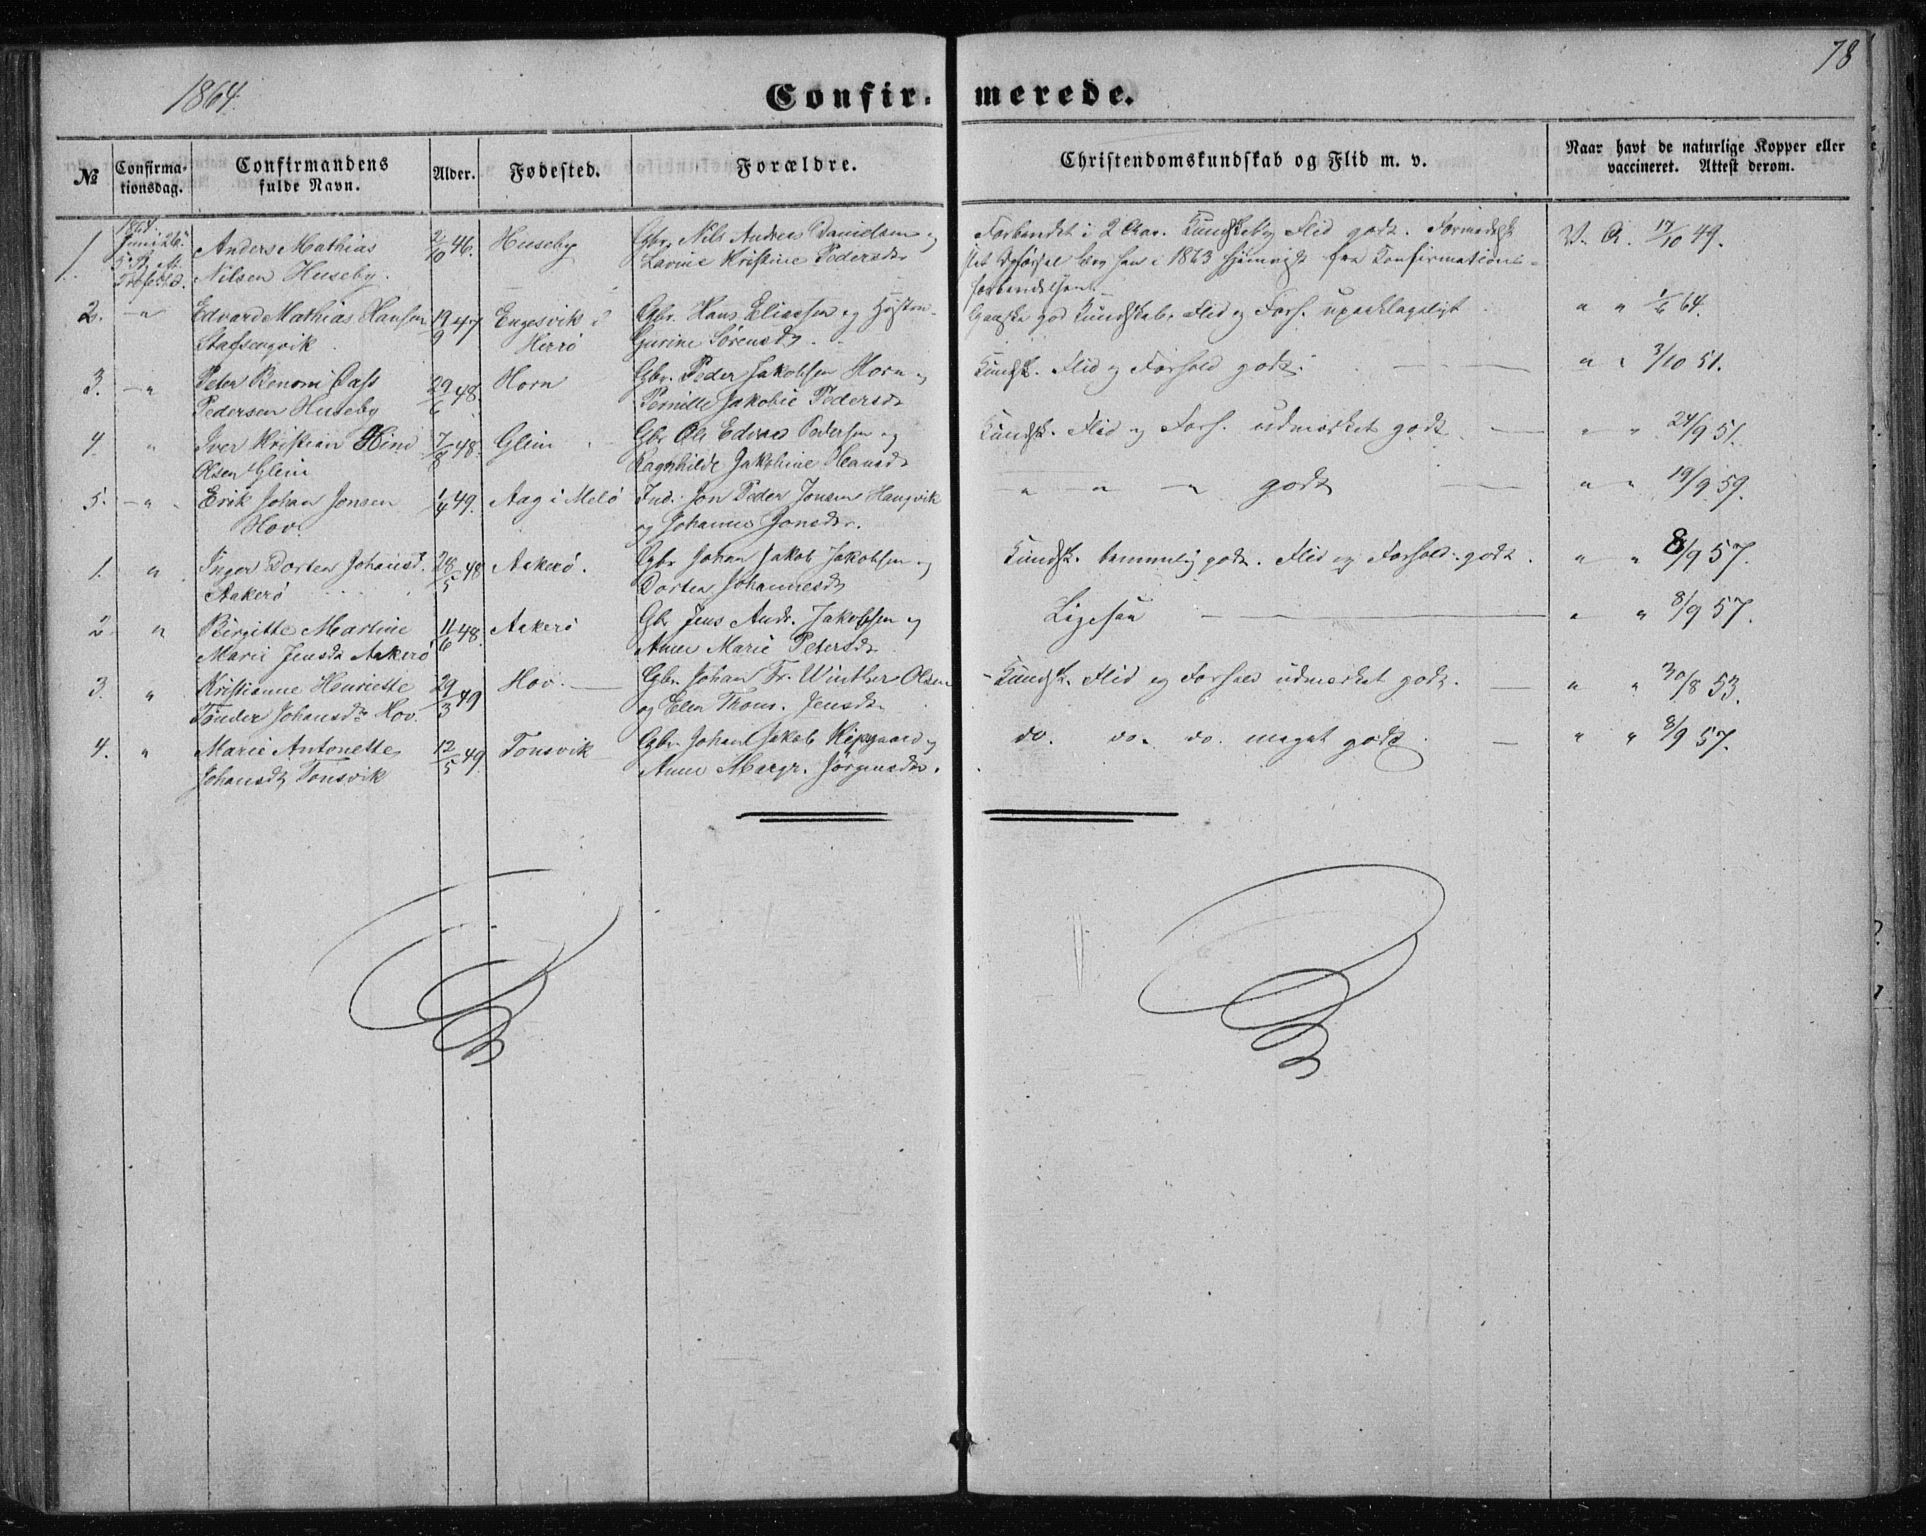 1864.
Confir-
merede.
78
№
Confirma-
tionsdag.
Confirmandens
fulde Navn.
Alder.
Fødested.
Forældre.
Christendomskundskab og Flid m. v.
Naar havt de naturlige Kopper eller
vaccineret. Attest derom.
1. 1864. Juni 26. Anders Mathias 2/10 46. Huseby Gbr. Nils Andrea Danielsen og Forbendet i 2 Aar. Kundskab og Flid godt. V. A. 17/10 49.
Nilsen Huseby. Lavine Kristine Pedersdr i 1863 hjemvist fra Konfirmations-
2. -"- Edvard Mathias Hansen 19/9 47 Engesvik i Gbr. Hans Eliassen og Hustru Ganske god Kundskab, Flid og Forh. upaaklageligt " " 1/6 64.
Herrø Gurine Sørensdr.
3. -"- Peter Benoni Dass 29/6 48. Horn Gbr. Peder Jakobsen Horn og Kundsk. Flid og Forhold godt. " " 3/10 51.
Pedersen Huseby Pernille Jakobie Pedersdr
4. " Iver Kristian Hind 7/8 48. Glein Gbr Ole Edvard Pedersen og Kundsk. Flid og Forh. udmærket godt. " " 24/9 51.
Olsen Glein Ragnhilde Jakobine Hansdr
5. -"- Erik Johan Jonsen 1/4 49. Aag i Melø Ind. Jon Peder Jonsen Haugvik " " " godt " " 19/9 59.
Hov. og Johanna Jonsdr.
1. " Inger Dortea Johansd. 28/5 48 Aakerø. Gbr Johan Jakob Jakobsen og Kundsk. temmelig godt. Flid og Forhold godt. " " 8/9 57.
Aakerø Dortea Johannesdr
2. " Birgitte Martine 11/6 48. Aakerø Gbr Jens Andr. Jakobsen og Ligesaa " " 8/9 57.
Marie Jensdr Aakerø Anne Marie Petersdr
3. " Kristianne Henriette 29/3 49 Hov. Gbr. Johan Fr. Winther Olsen Kundsk. Flid og Forhold udmærket godt. " " 30/8 53.
Tønder Johansdr Hov. og Elen Thom. Jensdr
4. " Marie Antonette 12/5 49. Tonsvik Gbr. Johan Jakob Kipgaard og do. do. do. meget godt. " " 8/9 57.
Johansdr Tonsvik Anne Margr. Jørgensdr.